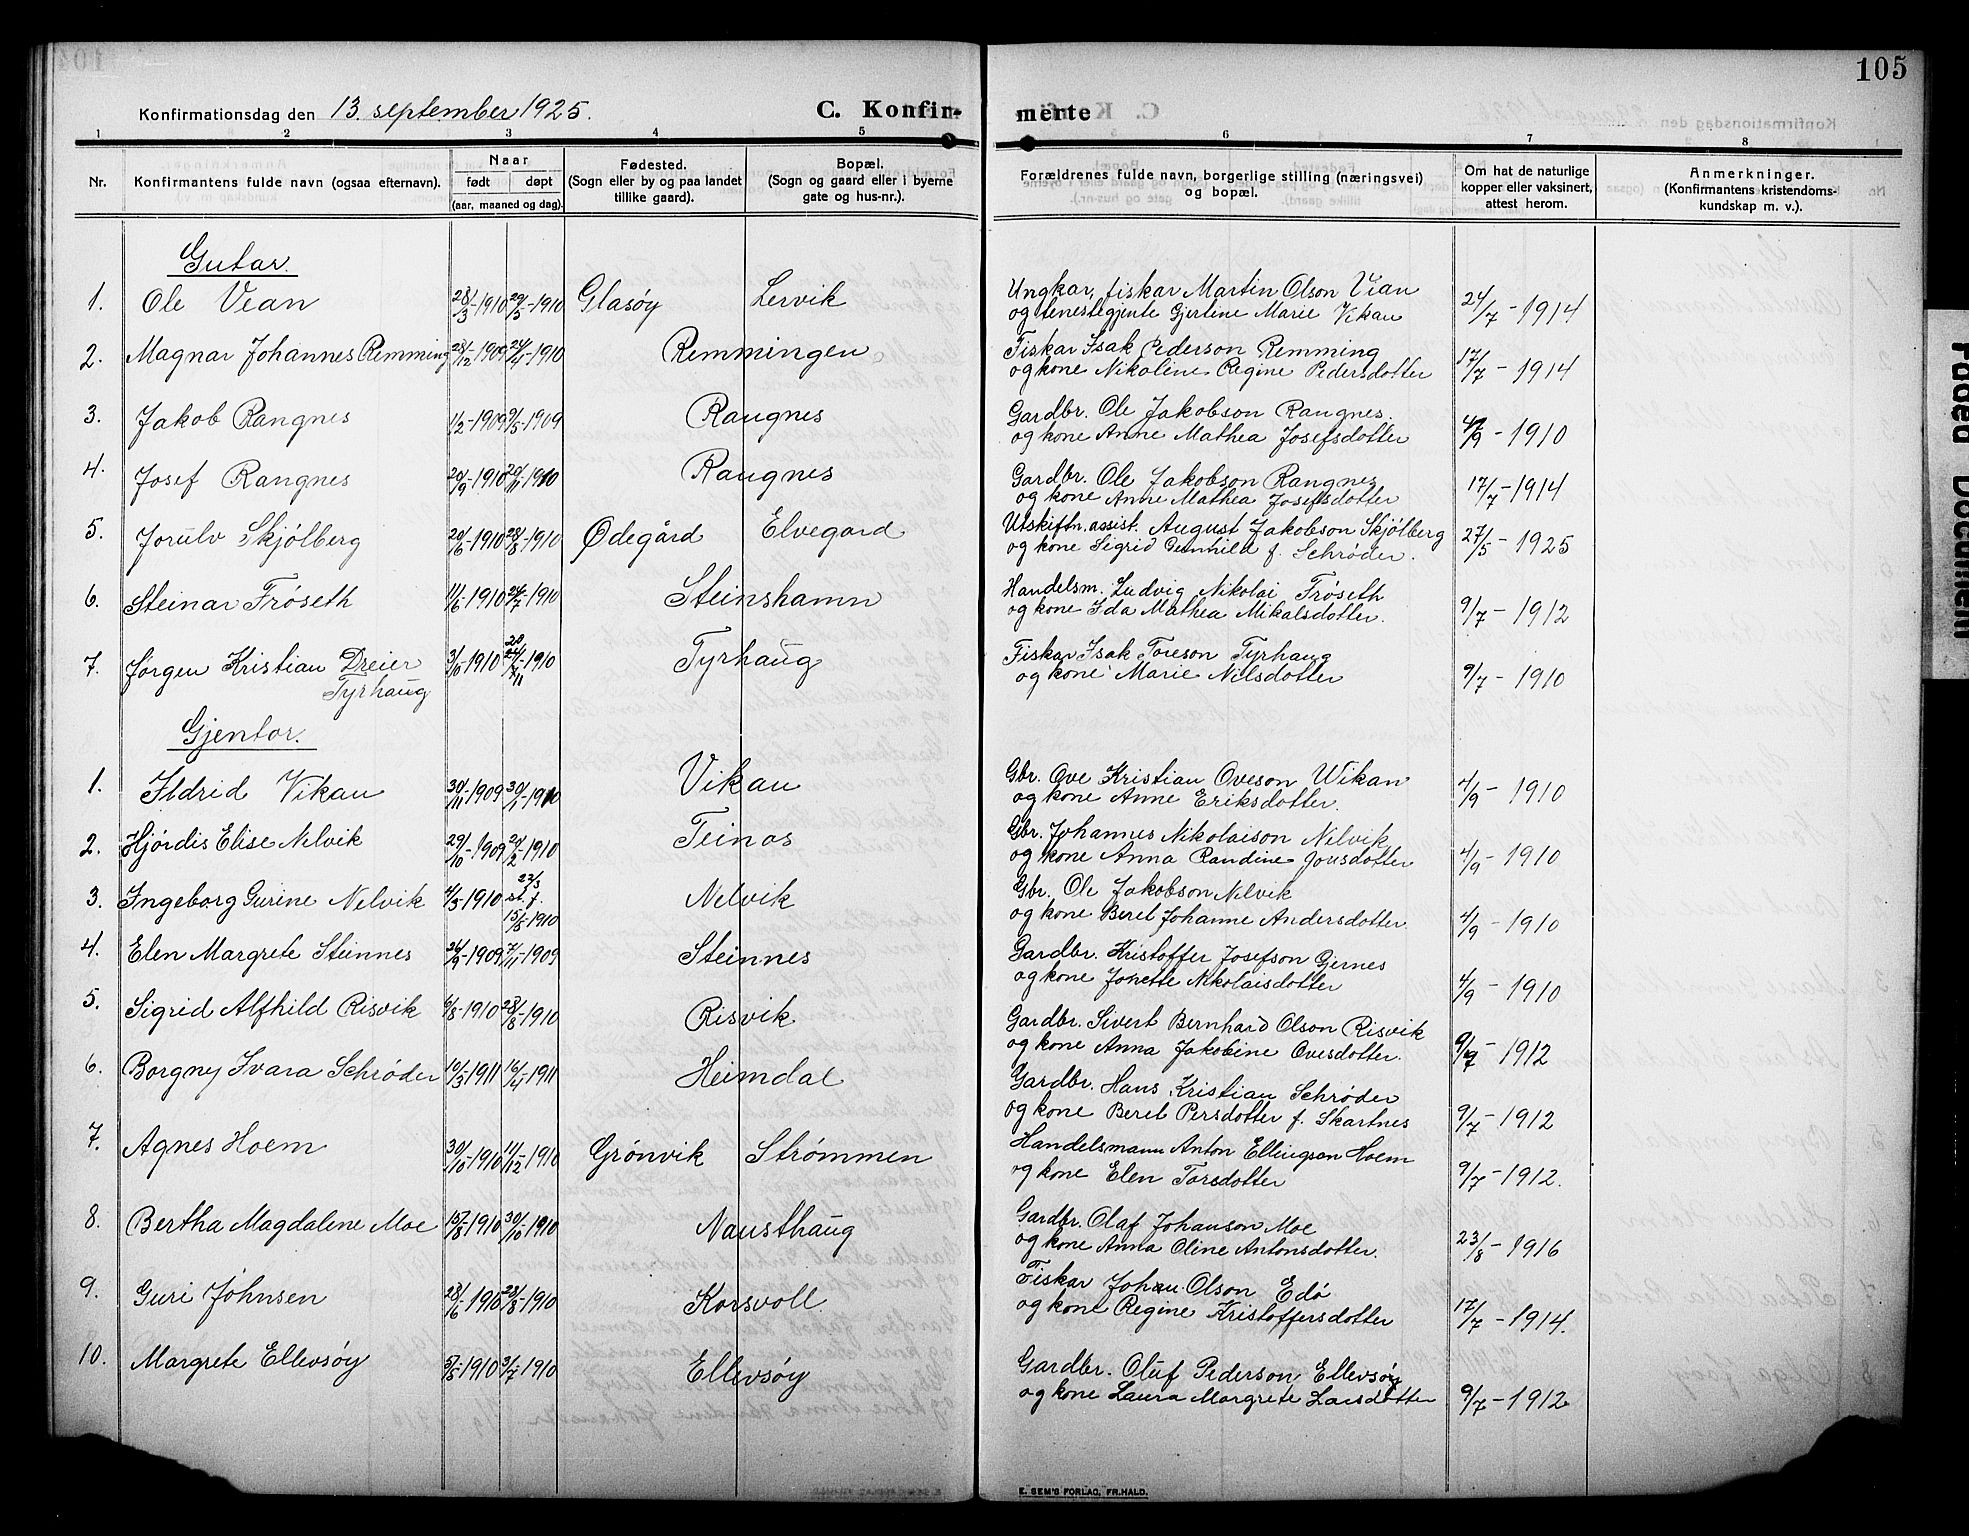 105
Konfirmationsdag den 13. september 1925.
C. Konfirmerte
1 2 3 4 5 6 7 8
Nr.
Konfirmantens fulde navn (ogsaa efternavn).
Naar
født døpt
(aar, maaned og dag).
Fødested.
(Sogn eller by og paa landet
tillike gaard).
Bopæl.
(Sogn og gaard eller i byerne
gate og hus-nr.).
Forældrenes fulde navn, borgerlige stilling (næringsvei)
og bopæl.
Om hat de naturlige
kopper eller vaksinert,
attest herom.
Anmerkninger.
(Konfirmantens kristendoms-
kundskap m. v.).
Gutar.
1. Ole Vean 28/3-1910 29/5-1910 Glasøy Lervik Ungkar, fiskar Martin Olson Vean 24/7-1914
og tenestegjente Gjertine Marie Vikan
2. Magnar Johannes Remming 28/12-1909 24/4-1910 Remmingen Fiskar Isak Pederson Remming 17/7-1914
og kone Nikoline Regine Pedersdotter
3. Jakob Rangnes 1/2-1909 9/5-1909 Rangnes Gardbr. Ole Jakobson Rangnes. 4/9-1910
og kone Anne Mathea Josefsdotter
4. Josef Rangnes 20/9-1910 20/11-1910 Rangnes Gardbr. Ole Jakobson Rangnes 17/7-1914
og kone Anne Mathea Josefsdotter
5. Jorulv Skjølberg 20/6-1910 28/8-1910 Ødegård Elvegard Utskiftn. assist. August Jakobson Skjølberg 27/5-1925
og kone Sigrid Gunhild f. Schrøder.
6. Steinar Frøseth 11/6-1910 24/7-1910 Steinshamn Handelsm. Ludvig Nikolai Frøseth 9/7-1912
og kone Ida Mathea Mikalsdotter.
7. Jørgen Kristian Dreier 3/10-1910 20/11-1910 Tyrhaug Fiskar Isak Toreson Tyrhaug 9/7-1910
Tyrhaug og kone Marie Nilsdotter
Gjentor.
1. Ildrid Vikan 30/11-1909 30/1-1910 Vikan Gbr. Ove Kristian Oveson Wikan 4/9-1910
og kone Anne Eriksdotter.
2. Hjørdis Elise Nelvik 29/10-1909 20/2-1910 Teinas Gbr. Johannes Nikolaison Nelvik 4/9-1910
og kone Anna Randine Jonsdotter
3. Ingeborg Gurine Nelvik 4/3-1910 23/3 st. f. 15/5-1910 Nelvik Gbr. Ole Jakobson Nelvik 4/9-1910
og kone Beret Johanne Andersdotter.
4. Elen Margrete Steinnes 26/9-1909 7/11-1909 Steinnes Gardbr. Kristoffer Josefson Gjernes 4/9-1910
og kone Jonette Nikolaisdotter
5. Sigrid Alfhild Risvik 6/8-1910 28/8-1910 Risvik Gardbr. Sivert Bernhard Olson Risvik 9/7-1912
og kone Anna Jakobine Ovesdotter.
6. Borgny Svara Schrøder 10/3-1911 16/4-1911 Heimdal Gardbr. Hans Kristian Schrøder 9/7-1912
og kone Beret Persdotter f. Skartnes
7. Agnes Hoem 30/10-1910 11/12-1910 Grønvik Strømmen Handelsmann Anton Ellingson Hoem 9/7-1912.
og kone Elen Torsdotter
8. Bertha Magdalene Moe 15/8-1910 30/10-1910 Nausthaug Gardbr. Olaf Johanson Moe 23/8-1916
og kone Anna Oline Antonsdotter.
9. Guri Johnsen 28/6-1910 28/8-1910 Korsvoll Fiskar Johan Olson Edø 17/7-1914.
og kone Regine Kristoffersdotter
10. Margrete Ellevsøy 5/5-1910 3/7-1910 Ellevsøy Gardbr. Oluf Pederson Ellevsøy 9/7-1912
og kone Laura Margrete Larsdotter
E. SEM'S FORLAG, FR.HALD.
Faded Document